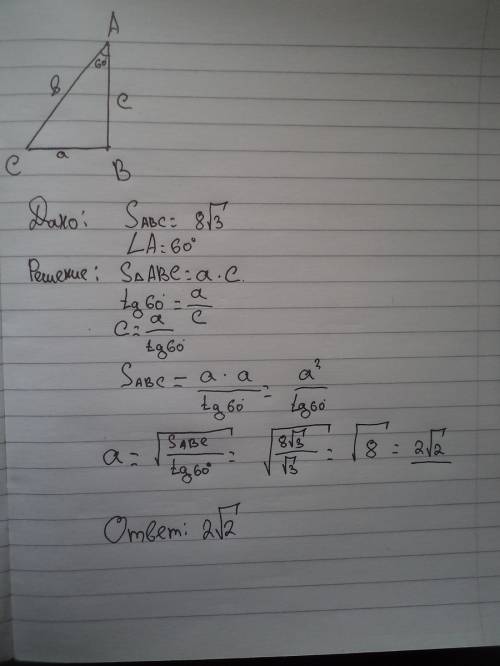 A
60°
8
c
C
a
B
Дано: SABC = 8√3
∠A = 60°
Решение: S△ABC = a · c.
tg60° = a/c
c = a/tg60°
SABC = a · a/tg60° = a²/tg60°
a = √(SABC/tg60°) = √(8√3/√3) = √8 = 2√2
Ответ: 2√2